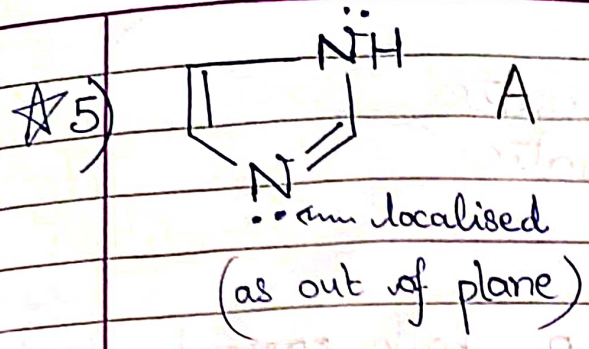 N̈H
☆5) A
N
.. localised
(as out of plane)